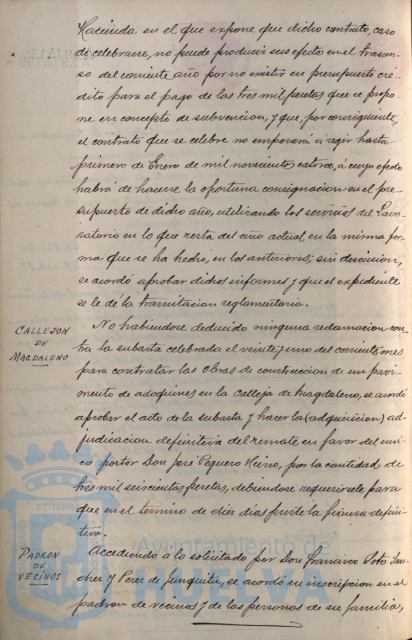 Hacienda en el que expone que dicho contrato, caso
de celebrarse, no puede producir sus efecto en el trascur-
so del corriente año por no existir en presupuesto cré-
dito para el pago de las tres mil pesetas que se propo-
ne en concepto de subvencion, y que, por consiguiente,
el contrato que se celebre no empezará á regir hasta
primero de Enero de mil novecientos catorce, á cuyo efecto
habrá de hacerse la oportuna consignacion en el pre-
supuesto de dicho año, utilizando los servicios del Lava-
ratorio en lo que resta del año actual, en la misma for-
ma que se ha hecho, en los anteriores; sin discusion,
se acordó aprobar dichos informes y que el expediente
se le dé la tramitacion reglamentaria.
CALLEJON
DE
MAGDALENO
No habiendose deducido ninguna reclamacion con-
tra la subasta celebrada el veinte y uno del corriente mes
para contratar las obras de construccion de un pavi-
mento de adoquines en la calleja de Magdaleno, se acordó
aprobar el acto de la subasta y hacer la (adquisicion) ad-
judicacion definitiva del remate en favor del uni-
co postor Don José Peguero Hierro, por la cantidad de
tres mil seiscientas pesetas, debiendose requerirsele para
que en el termino de diez dias preste la fianza defini-
tiva.
PADRON
DE
VECINOS
Accediendo á lo solicitado por Don Francisco Soto San-
chez y Perez de Junguitu, se acordó su inscripcion en el
padron de vecinos y de las personas de su familia,
Ayuntamiento de
HUELVA